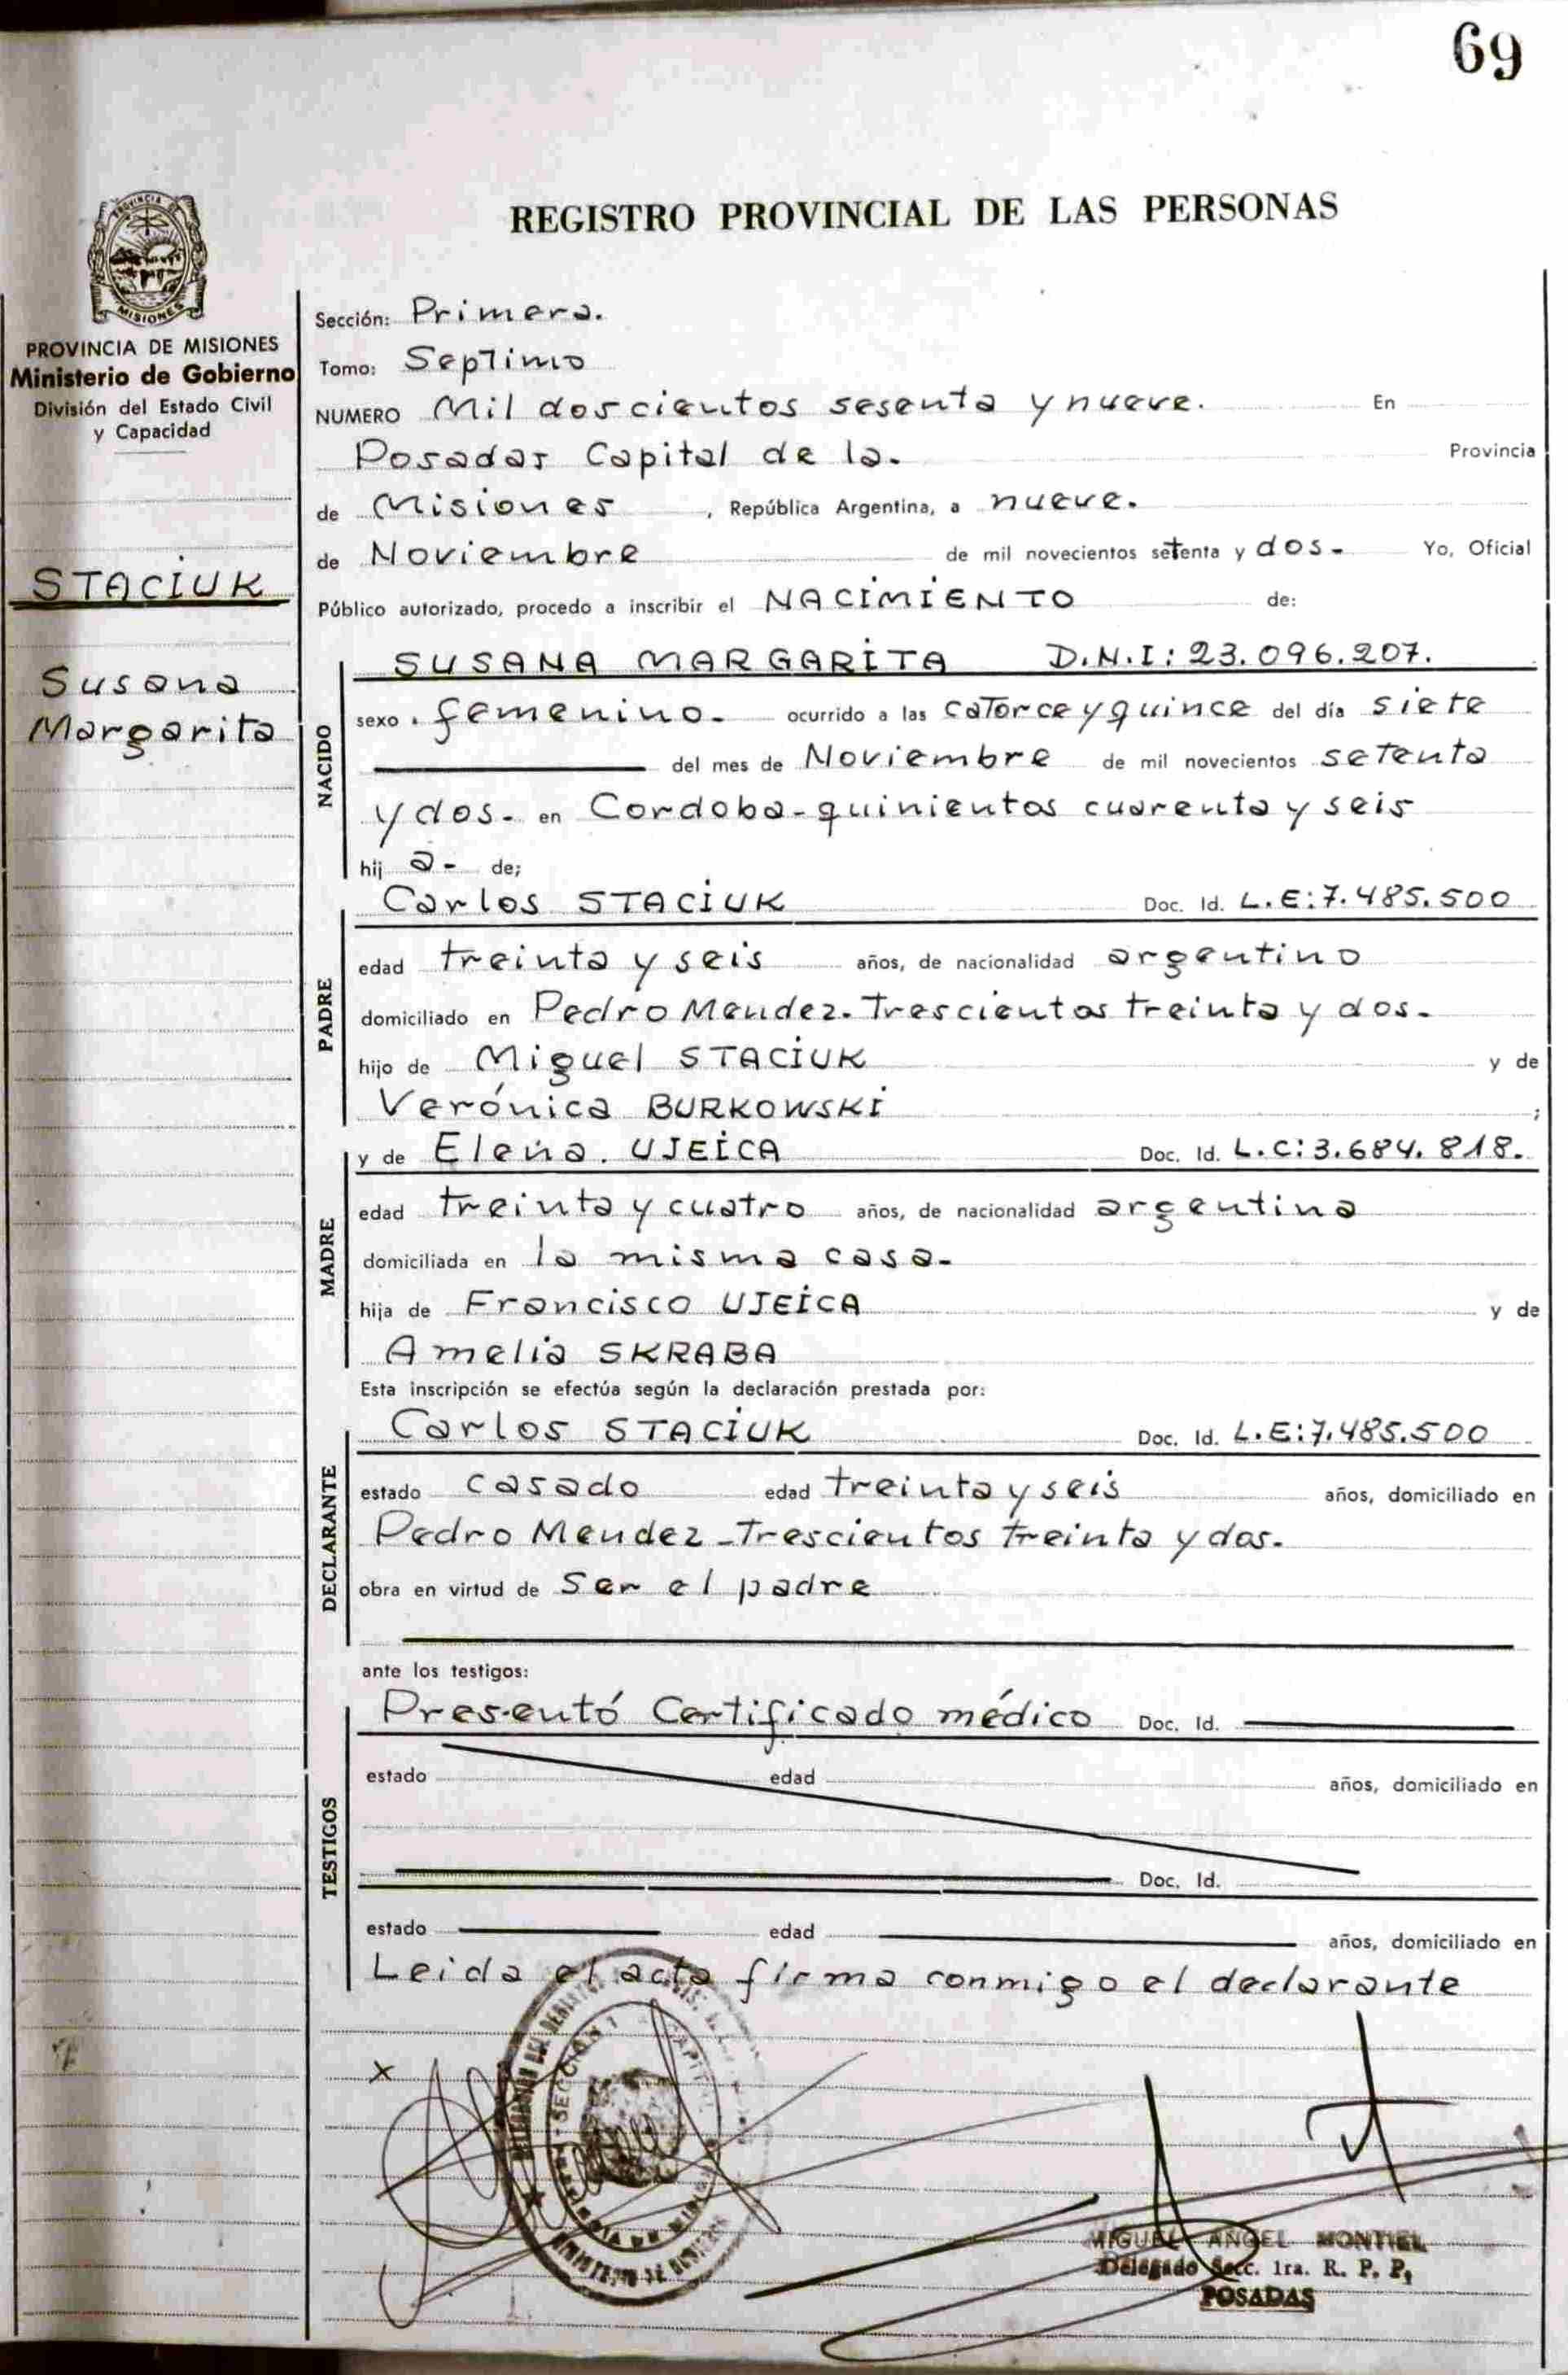 69
REGISTRO PROVINCIAL DE LAS PERSONAS
PROVINCIA DE
MISIONES
PROVINCIA DE MISIONES
Ministerio de Gobierno
División del Estado Civil
y Capacidad
STACIUK
Susana
Margarita
Sección: Primera.
Tomo: Septimo
NUMERO Mil doscientos sesenta y nueve. En
Posadas Capital de la. Provincia
de Misiones , República Argentina, a nueve.
de Noviembre de mil novecientos setenta y dos- Yo, Oficial
Público autorizado, procedo a inscribir el NACIMIENTO de:
SUSANA MARGARITA D.N.I: 23.096.207.
NACIDO
sexo femenino. ocurrido a las catorce y quince del día siete
del mes de Noviembre de mil novecientos setenta
y dos. en Cordoba-quinientos cuarenta y seis
hij a- de;
Carlos STACIUK Doc. Id. L.E:7.485.500
PADRE
edad treinta y seis años, de nacionalidad argentino
domiciliado en Pedro Mendez. Trescientos treinta y dos.
hijo de Miguel STACIUK y de
Verónica BURKOWSKI ;
y de Elena. UJEICA Doc. Id. L.C:3.684.818.
MADRE
edad treinta y cuatro años, de nacionalidad argentina
domiciliada en la misma casa-
hija de Francisco UJEICA y de
Amelia SKRABA
Esta inscripción se efectúa según la declaración prestada por:
Carlos STACIUK Doc. Id. L.E:7.485.500
DECLARANTE
estado casado edad treinta y seis años, domiciliado en
Pedro Mendez-Trescientos treinta y dos.
obra en virtud de Ser el padre
ante los testigos:
Presentó Certificado médico Doc. Id.
TESTIGOS
estado edad años, domiciliado en
Doc. Id.
estado edad años, domiciliado en
Leida el acta firma conmigo el declarante
x
SECCION 1
MIGUEL ANGEL MONTIEL
Delegado Secc. 1ra. R. P. P.
POSADAS